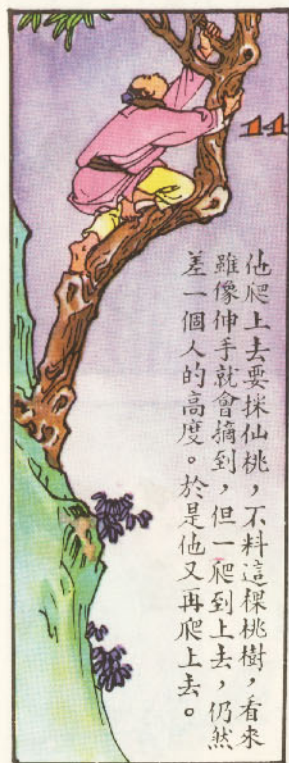 11
他爬上去要採仙桃,不料這棵桃樹,看來
雖像伸手就會摘到,但一爬到上去,仍然
差一個人的高度。於是他又再爬上去。